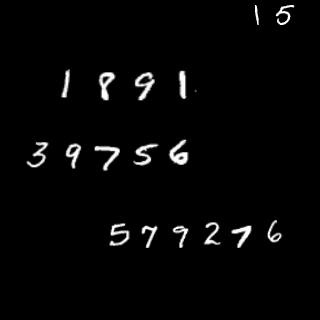 15
1891
39756
579276